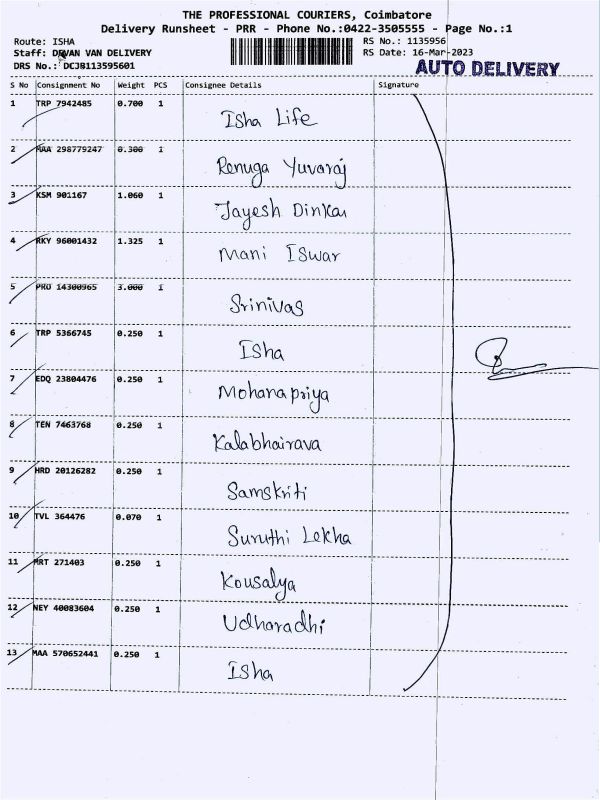 THE PROFESSIONAL COURIERS, Coimbatore
Delivery Runsheet - PRR - Phone No.:0422-3505555 - Page No.:1
Route: ISHA
RS No.: 1135956
Staff: DEVAN VAN DELIVERY
RS Date: 16-Mar-2023
DRS No.: DCJB113595601
AUTO DELIVERY
S No Consignment No Weight PCS Consignee Details Signature
1 TRP 7942485 0.700 1
Isha Life
2 MAA 298779247 0.300 1
Renuga Yuvaraj
3 KSM 901167 1.060 1
Jayesh Dinkar
4 RKY 96001432 1.325 1
Mani Iswar
5 PRO 14300965 3.000 1
Srinivas
6 TRP 5366745 0.250 1
Isha
7 EDQ 23804476 0.250 1
Mohanapriya
8 TEN 7463768 0.250 1
Kalabhairava
9 HRD 20126282 0.250 1
Samskriti
10 TVL 364476 0.070 1
Suruthi Lekha
11 MRT 271403 0.250 1
Kousalya
12 NEY 40083604 0.250 1
Udharadhi
13 MAA 570652441 0.250 1
Isha